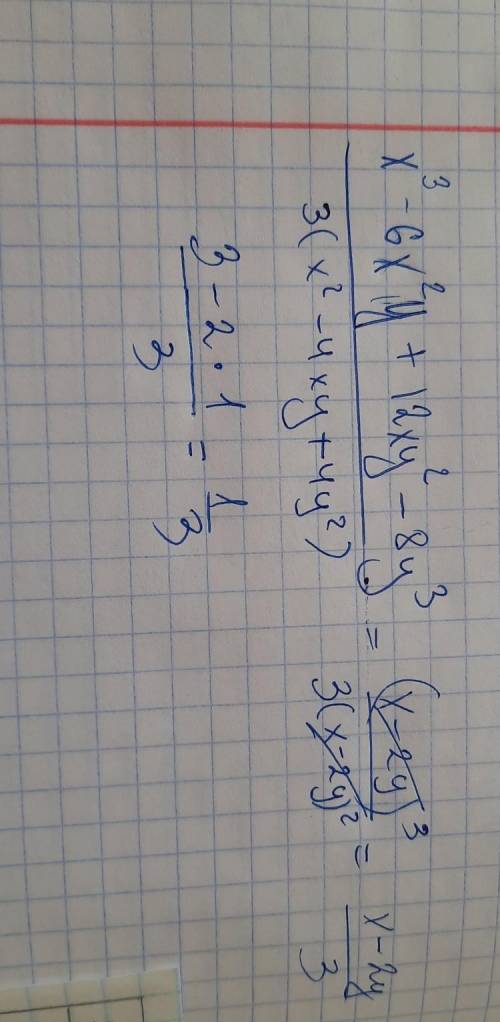 x³ - 6x²y + 12xy² - 8y³ / 3(x² - 4xy + 4y²) = (x - 2y)³ / 3(x - 2y)² = x - 2y / 3
3 - 2 · 1 / 3 = 1 / 3